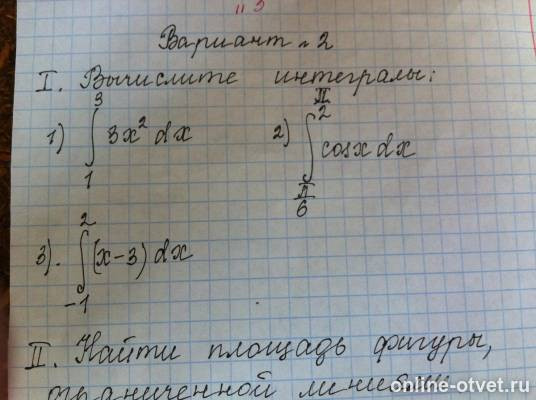 Вариант №2
I. Вычислите интегралы:
1) ∫₁³ 3x² dx 2) ∫_{π/6}^{π/2} cosx dx
3). ∫₋₁² (x-3) dx
II. Найти площадь фигуры,
ограниченной линиями
online-otvet.ru